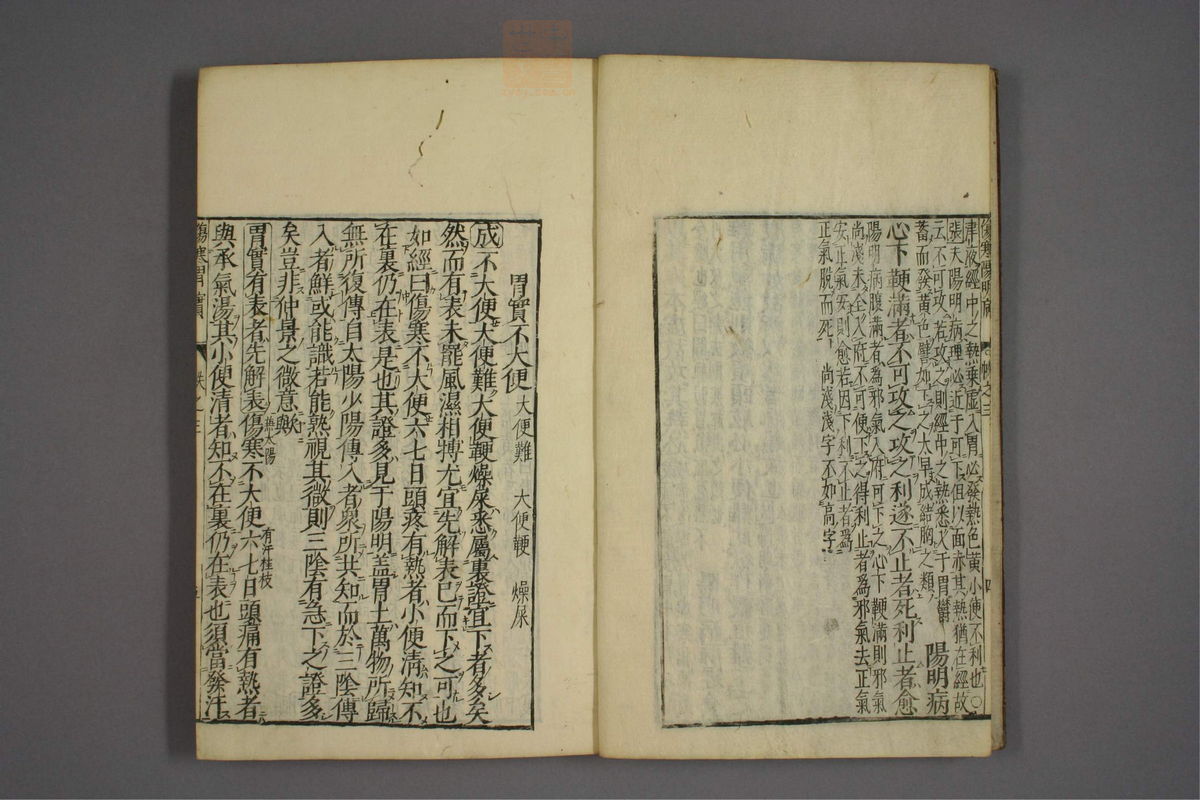 津液經中之熱乗虚入胃必發熱色黄小便不利也○
張夫陽明病理必近于可下但以面赤其熱猶在經故
云不可攻若攻之則經中之熱悉入于胃欝
蓄而發黄色譬如下之太早成結胸之類
陽明病
心下鞕滿者不可攻之攻之利遂不止者死利止者愈
陽明病腹滿者為邪氣入府可下之心下鞕滿則邪氣
尚淺未全入府不可便下之得利止者為邪氣去正氣
安正氣安則愈若因下利不止者為
正氣脱而死
尚淺淺字不如高字
胃實不大便 大便難 大便鞕 燥屎
成 不大便大便難大便鞕燥屎悉屬裏證宜下者多矣
然而有表未罷風濕相搏尤宜先解表已而下之可也
如經曰傷寒不大便六七日頭疼有熱者小便清知不
在裏仍在表是也其證多見于陽明盖胃土萬物所歸
無所復傳自太陽少陽傳入者衆所共知而於三陰傳
入者鮮或能識若能熟視其微則三陰有急下之證多
矣豈非仲景之微意歟
胃實有表者先解表傷寒不大便六七日頭痛有熱者
與承氣湯其小便清者知不在裏仍在表也須當發汗
傷寒胃實